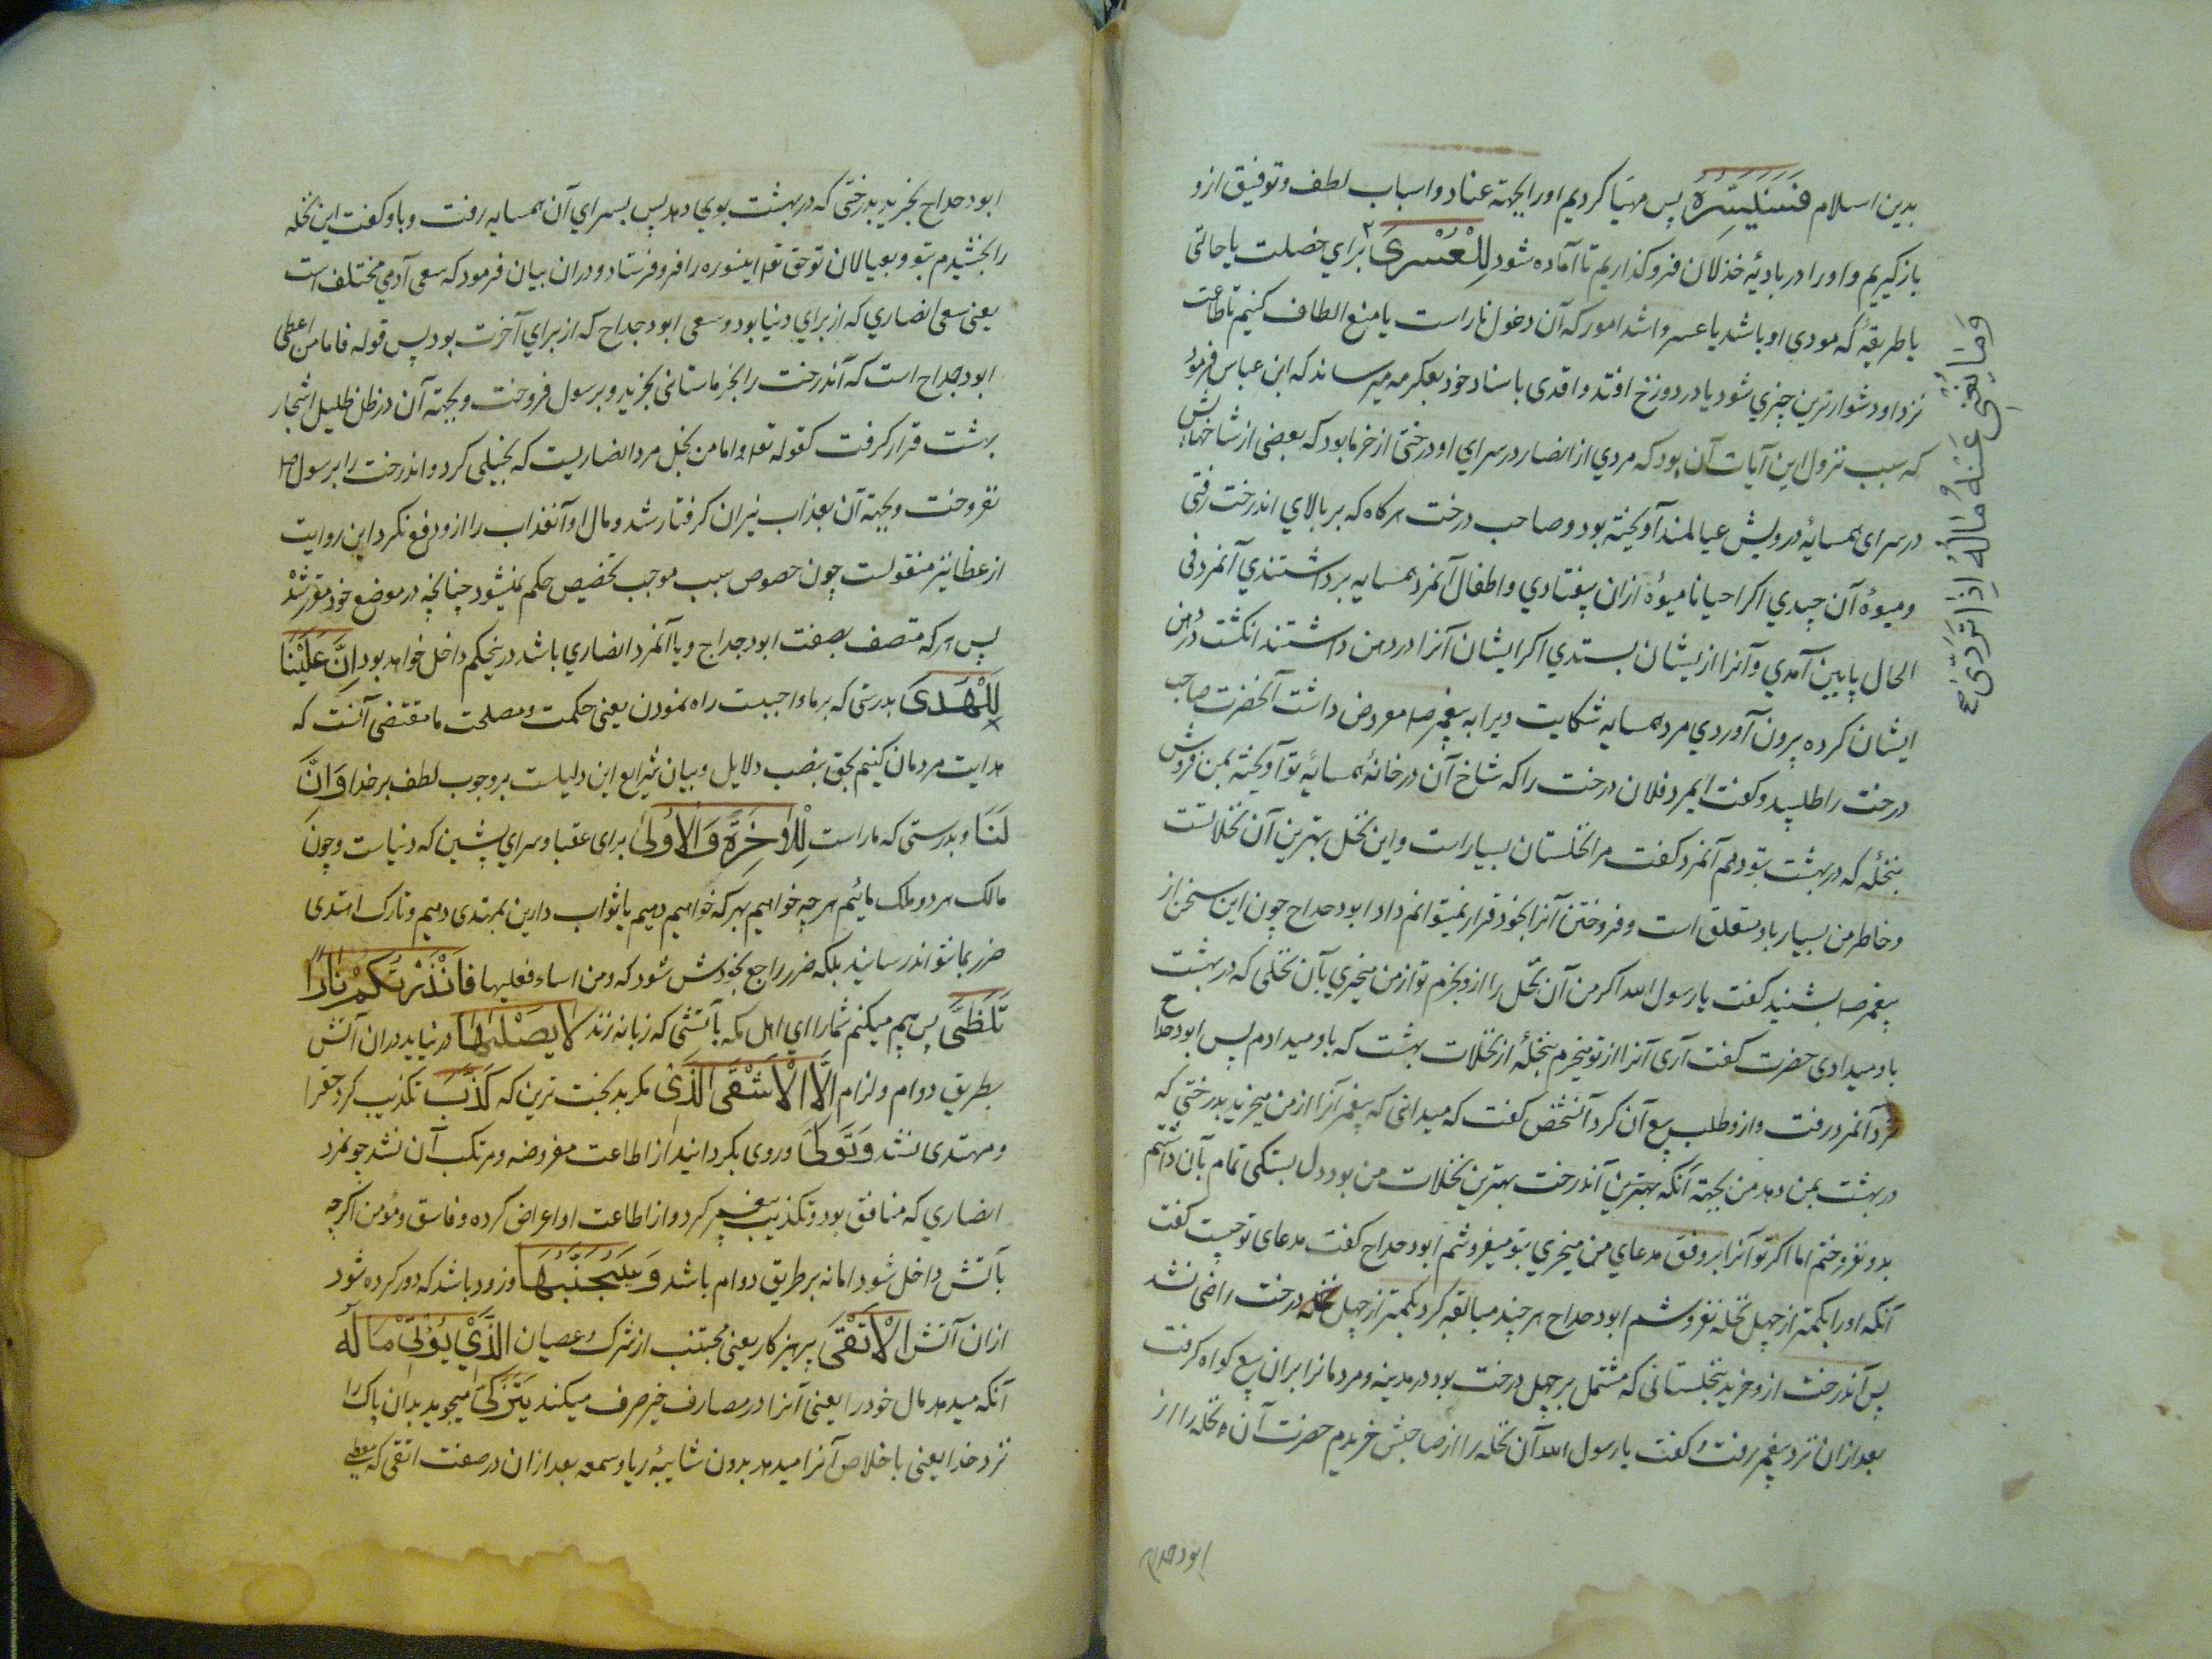 بدین اسلام فَسَنُیَسِّرُهُ پس مهیّا کردیم اورا بجهة عناد و اسباب لطف و توفیق ازو
باز کیریم و اورا در بادیٔه خذلان فروکذاریم تا آماده شود لِلْعُسْرَیٰ برای خصلت یا حالتی
یا طریقهٔ که مودی او باشد یا عسر و اشد امور که آن دخول نار است یا منع الطاف کنیم تا طاعت
نزد او دشوارترین چیزی شود یا در دوزخ افتد واقدی باسناد خود بعکرمه میرساند که ابن عباس فرمود
که سبب نزول این آیات آن بود که مردی از انصار در سرای او درختی از خرما بود که بعضی از شاخهایش
در سرای همسایهٔ درویش عیالمند آویخته بود و صاحب درخت هرکاه که بر بالای اندرخت رفتی
و میوهٔ آن چیدی اکر احیانا میوهٔ ازان بیفتادی و اطفال آنمرد همسایه برداشتندی آنمرد فی
الحال پایین آمدی و آنرا ازیشان بستدی اکر ایشان آنرا در دهن داشتند انکشت در دهن
ایشان کرده بیرون آوردی مرد همسایه شکایت ویرا به پیغمبر ص معروض داشت آنحضرت صاحب
درخت را طلبید و کفت ایمرد فلان درخت را که شاخ آن در خانهٔ همسایٔه تو آویخته بمن فروش
بنخلهٔ که در بهشت بتو دهم آنمرد کفت مرا نخلستان بسیار است و این نخل بهترین آن نخلاتست
و خاطر من بسیار باو متعلق است و فروختن آنرا بخود قرار نمیتوانم داد ابو دحداح چون این سخن از
پیغمبر ص بشنید کفت یا رسول الله اکر من آن نخل را ازو بخرم تو از من میخری بآن نخلی که در بهشت
باو میدادی حضرت کفت آری آنرا از تو میخرم بنخلهٔ از نخلات بهشت که باو میدادم پس ابو دحداح
نزد آنمرد رفت و ازو طلب بیع آن کرد آنشخص کفت که میدانی که پیغمبر آنرا از من میخرید بدرختی که
در بهشت بمن دهد من بجهة آنکه بهترین آندرخت بهترین نخلات من بود و دل بستکی تمام بآن داشتم
بدو نفروختم اما اکر تو آنرا بر وفق مدعای من میخری بتو میفروشم ابو دحداح کفت مدعای تو چیست کفت
آنکه اورا بکمتر از چهل نخله نفروشم ابو دحداح هر چند مبالغه کرد بکمتر از چهل نخله درخت راضی نشد
پس آندرخت ازو خرید بنخلستانی که مشتمل بر چهل درخت بود در مدینه و مردمانرا بران بیع کواه کرفت
بعد ازان نزد پیغمبر رفت و کفت یا رسول الله آن نخله را از صاحبش خریدم حضرت آن نخله را از
ابو دحداح
وَمَا یُغْنِی عَنْهُ مَالُهُ اِذَا تَرَدَّیٰ
ابو دحداح بخرید بدرختی که در بهشت بوی دهد پس بسرای آن همسایه رفت و باو کفت این نخله
را بخشیدم بتو و بعیالان تو حق تعا اینسوره را فرو فرستاد و دران بیان فرمود که سعی آدمی مختلف است
یعنی سعی انصاری که از برای دنیا بود و سعی ابو دحداح که از برای آخرت بود پس قوله فاما من اعطی
ابو دحداح است که آندرخت را بخرماستانی بخرید و برسول فروخت و بجهة آن در ظل ظلیل اشجار
بهشت قرار کرفت کقوله تعا و اما من بخل مرد انصاریست که بخیلی کرد و اندرخت را برسول ص
نفروخت و بجهة آن بعذاب نیران کرفتار شد و مال او آنعذاب را ازو دفع نکرد این روایت
از عطا نیز منقولست چون خصوص سبب موجب تخصیص حکم نمیشود چنانچه در موضع خود مقرر شد
پس هر که متصف بصفت ابو دحداح و یا آنمرد انصاری باشد درینحکم داخل خواهد بود اِنَّ عَلَیْنَا
لَلْهُدَیٰ بدرستی که بر ما واجبست راه نمودن یعنی حکمت و مصلحت ما مقتضی آنست که
هدایت مردمان کنیم بحق بنصب دلایل و بیان شرایع این دلیلست بر وجوب لطف بر خدا وَاِنَّ
لَنَا و بدرستی که ماراست لَلْاٰخِرَةَ وَالْاُولیٰ برای عقبا و سرای پیشین که دنیاست و چون
مالک هر دو ملک مائیم هر چه خواهیم بهر که خواهیم دهیم یا ثواب دارین بمهتدی دهیم و تارک اهتدی
ضرر بما نتواند رسانید بلکه ضرر راجع بخودش شود که و من اساء فعلیها فَاَنْذَرْتُکُمْ نَارًا
تَلَظّیٰ پس بیم میکنم شمارا ای اهل مکه بآتشی که زبانه زند لَا یَصْلٰیهَا در نیاید دران آتش
بطریق دوام و لزام اِلَّا الْاَشْقَی الَّذِی مکر بدبخت ترین که کَذَّبَ تکذیب کرد حقرا
و مهتدی نشد وَتَوَلّیٰ و روی بکردانید از اطاعت مفروضه و مرتکب آن نشد چو نمرد
انصاری که منافق بود و تکذیب پیغمبر کرد و از اطاعت او اعراض کرده و فاسق و مؤمن اکرچه
بآتش داخل شود اما نه بر طریق دوام باشد وَسَیُجَنَّبُهَا و زود باشد که دور کرده شود
ازان آتش الْاَتْقَیٰ پرهیزکار یعنی مجتنب از شرک و عصیان الَّذِیْ یُؤْتِیْ مَالَهُ
آنکه میدهد مال خود را یعنی آنرا در مصارف خیر صرف میکند یَتَزَکّیٰ میجوید بدان پاکی را
نزد خدا یعنی باخلاص آنرا میدهد بدون شایبهٔ ریا و سمعه بعد ازان در صفت اتقی که معطی